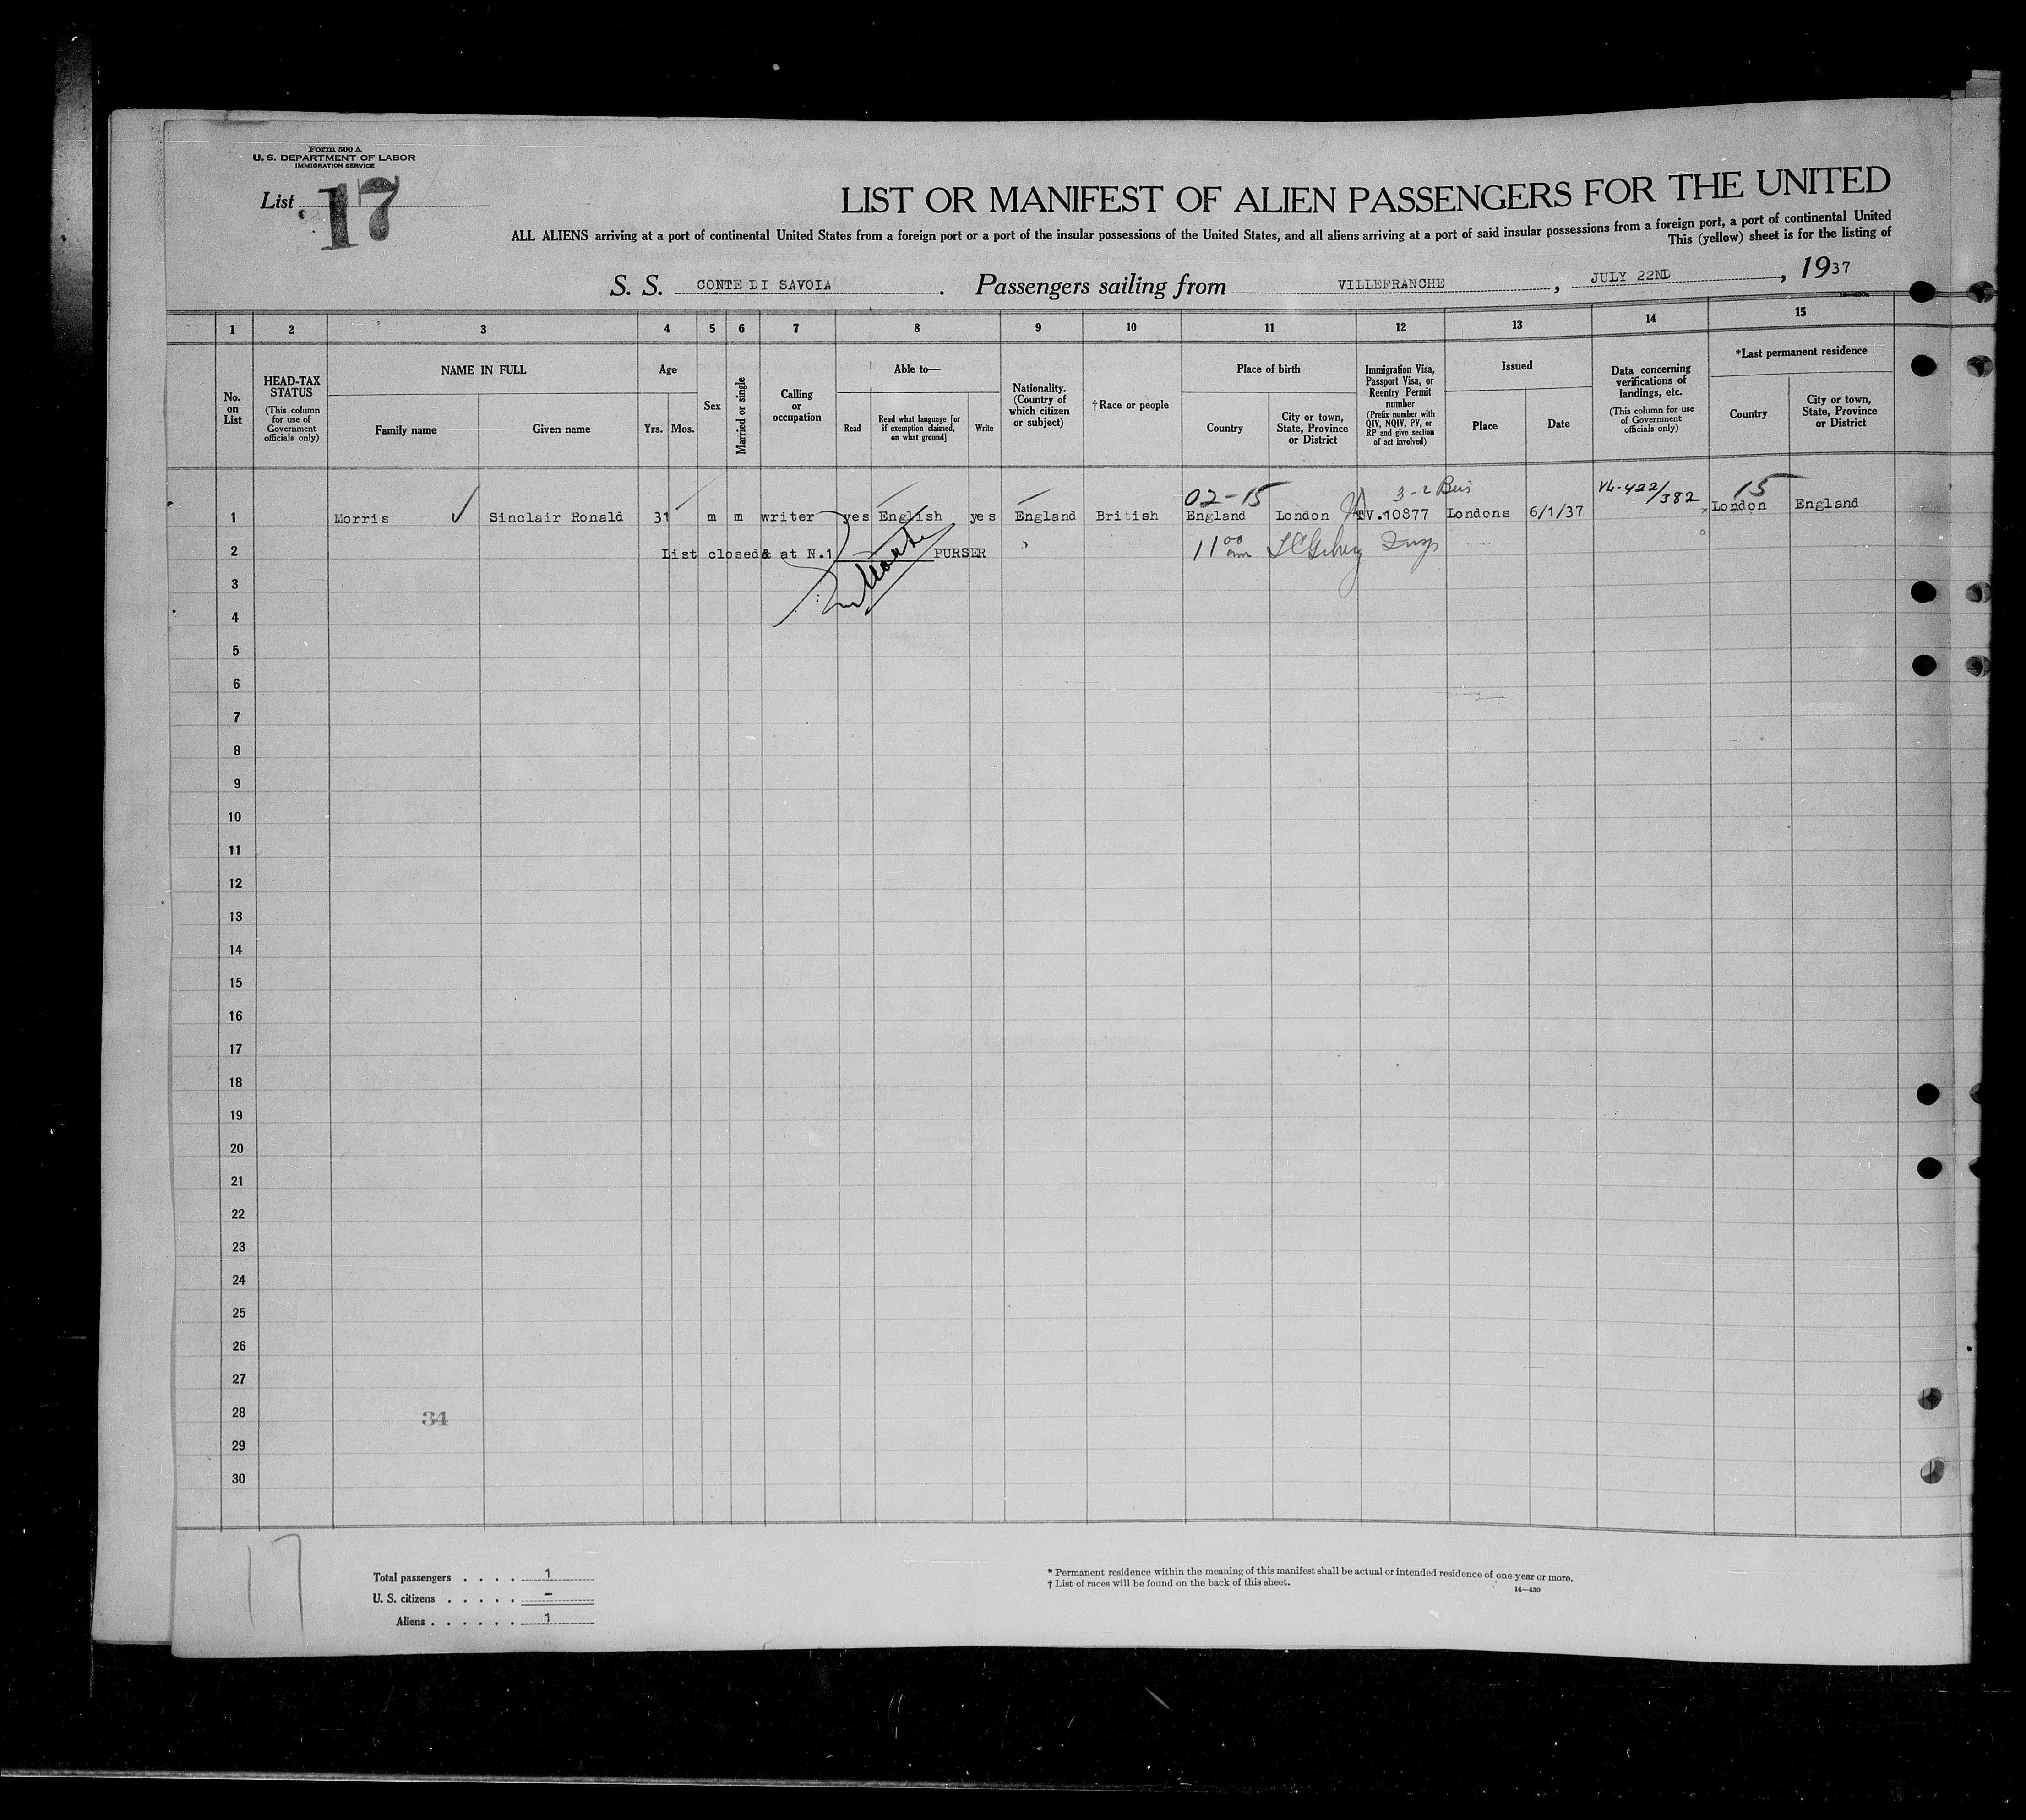 Form 500 A
U. S. DEPARTMENT OF LABOR
IMMIGRATION SERVICE
List 17
LIST OR MANIFEST OF ALIEN PASSENGERS FOR THE UNITED
ALL ALIENS arriving at a port of continental United States from a foreign port or a port of the insular possessions of the United States, and all aliens arriving at a port of said insular possessions from a foreign port, a port of continental United
This (yellow) sheet is for the listing of
S. S. CONTE DI SAVOIA. Passengers sailing from VILLEFRANCHE, JULY 22ND, 1937
1 2 3 4 5 6 7 8 9 10 11 12 13 14 15
No. on List
HEAD-TAX STATUS
(This column for use of Government officials only)
NAME IN FULL
Family name
Given name
Age
Yrs. Mos.
Sex
Married or single
Calling or occupation
Able to—
Read
Read what language [or if exemption claimed, on what ground]
Write
Nationality. (Country of which citizen or subject)
†Race or people
Place of birth
Country
City or town, State, Province or District
Immigration Visa, Passport Visa, or Reentry Permit number
(Prefix number with QIV, NQIV, PV, or RP and give section of act involved)
Issued
Place
Date
Data concerning verifications of landings, etc.
(This column for use of Government officials only)
*Last permanent residence
Country
City or town, State, Province or District
02-15 3-2 Bus 15
1 Morris ✓ Sinclair Ronald 31 m m writer yes English yes England British England London PV.10877 Londons 6/1/37 VL-422/382 London England
2 List closed& at N.1 PURSER 11 00 am
3
4
5
6
7
8
9
10
11
12
13
14
15
16
17
18
19
20
21
22
23
24
25
26
27
28 34
29
30
17
Total passengers . . . . 1
U. S. citizens . . . . . –
Aliens . . . . . . 1
* Permanent residence within the meaning of this manifest shall be actual or intended residence of one year or more.
† List of races will be found on the back of this sheet.
14—430